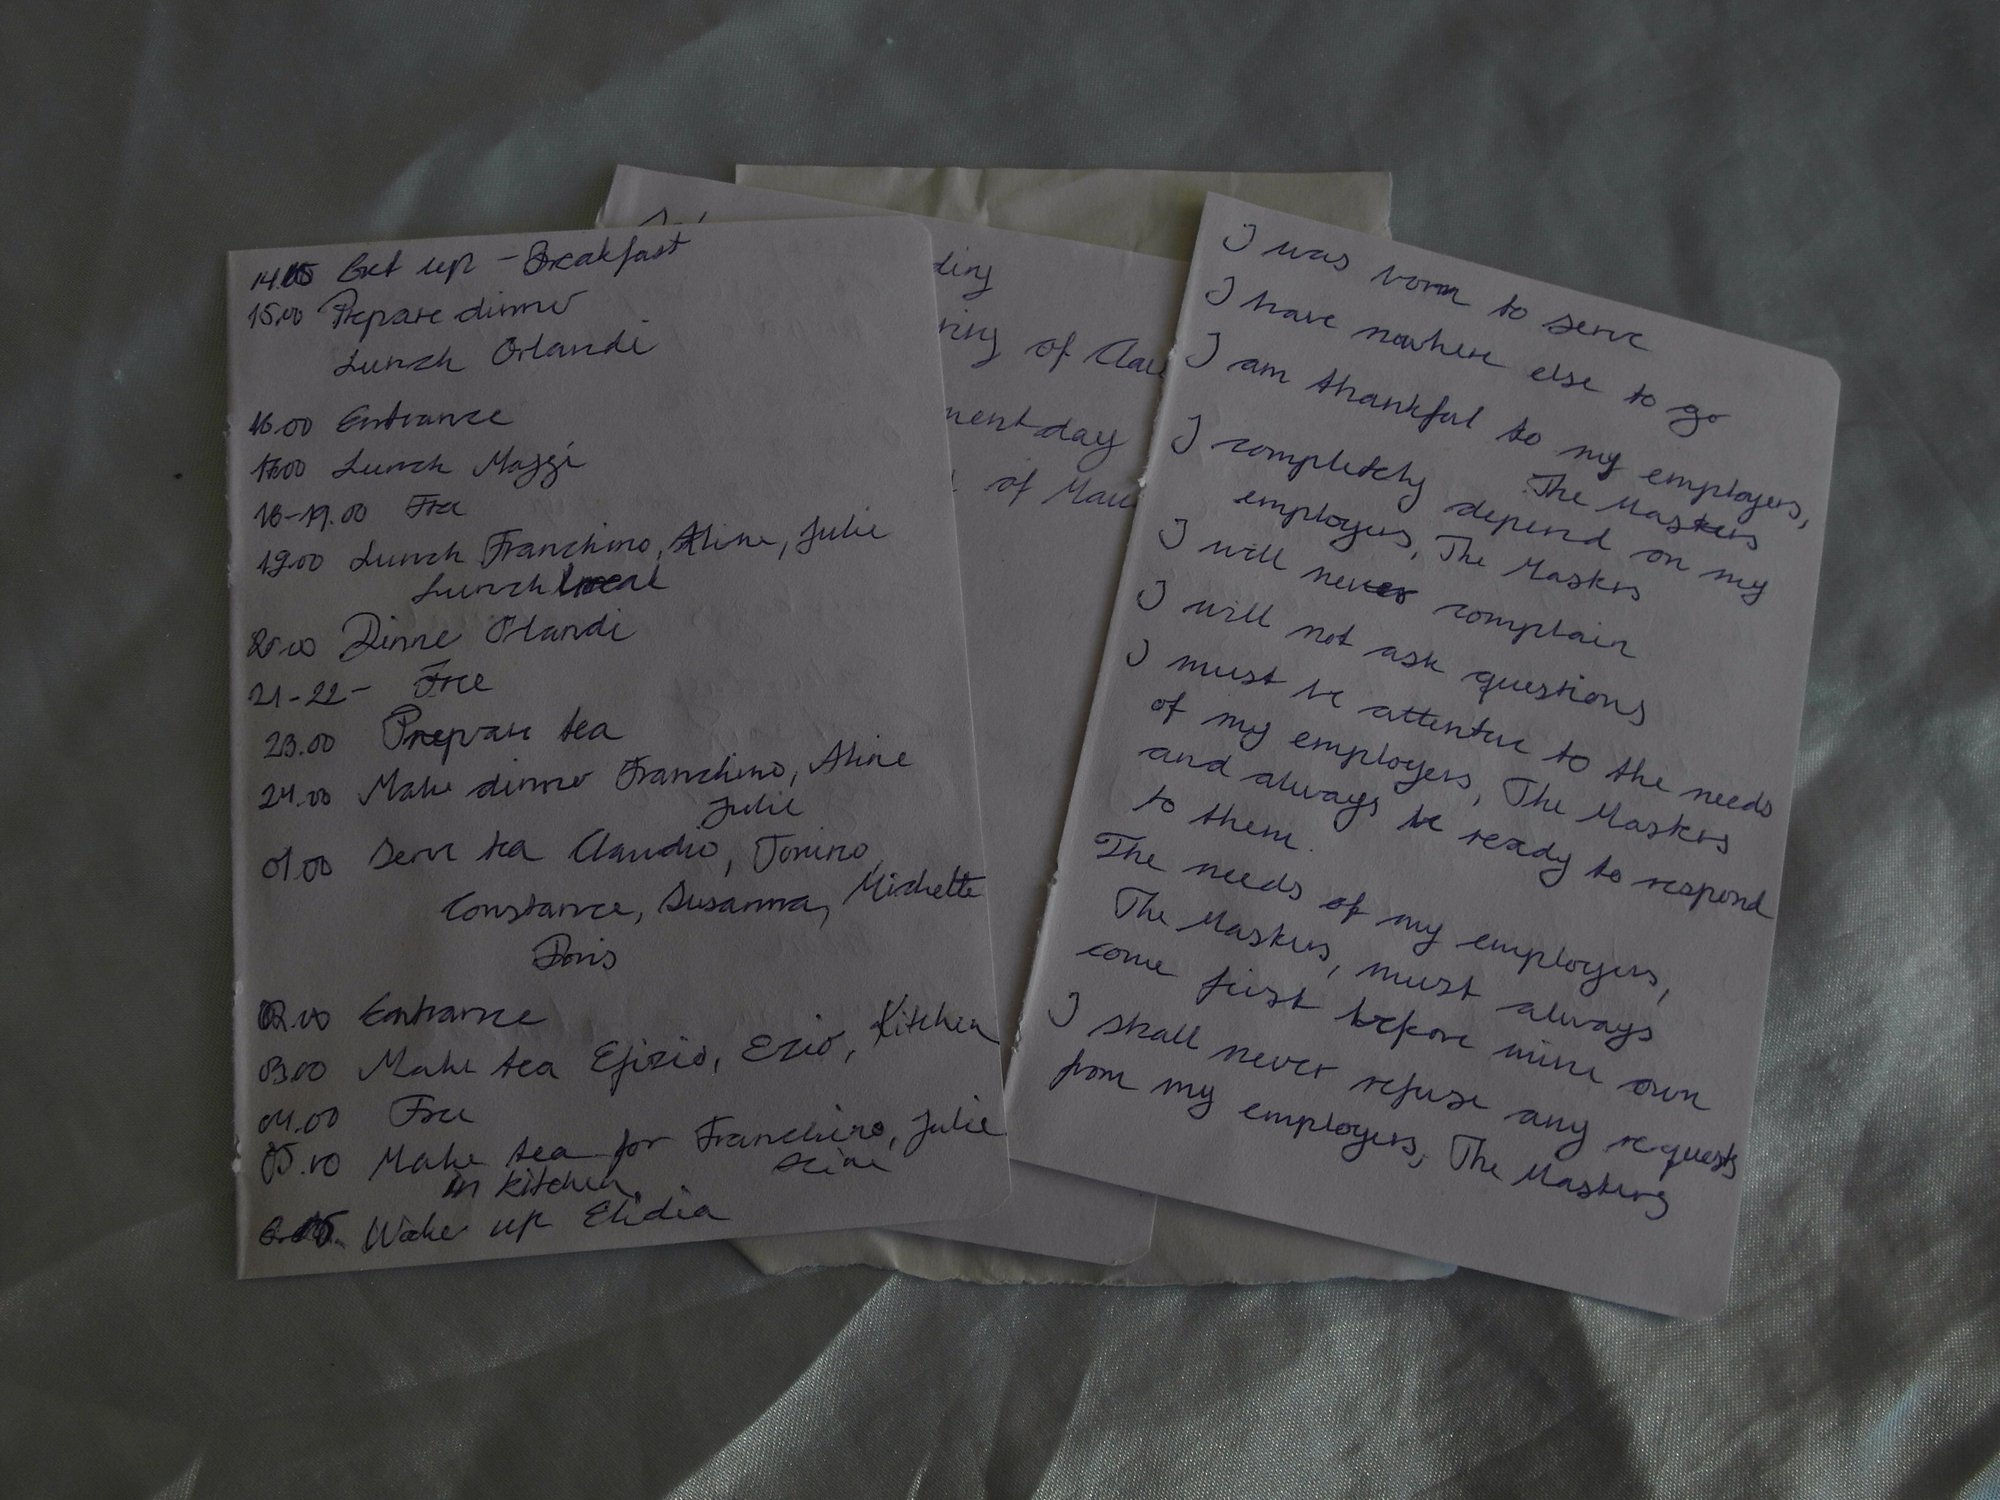 14.05 Get up - Breakfast
15.00 Prepare dinner
Lunch Orlandi
16.00 Entrance
17.00 Lunch Maggi
18-19.00 Free
19.00 Lunch Franchino, Aline, Julie
Lunch
20.00 Dinne Orlandi
21-22- Free
23.00 Prepare tea
24.00 Make dinner Franchino, Aline
Julie
01.00 Serve tea Claudio, Tonino,
Constance, Susanna, Michette
Doris
02.00 Entrance
03.00 Make tea Efizio, Ezio, Kitchen
04.00 Free
05.00 Make tea for Franchino, Julie
in kitchen Aline
Wake up Elidia
ding
ring of Clau
ment day
of Mau
I was born to serve
I have nowhere else to go
I am thankful to my employers,
The Maskers
I completely depend on my
employers, The Maskers
I will never complain
I will not ask questions
I must be attentive to the needs
of my employers, The Maskers
and always be ready to respond
to them.
The needs of my employers,
The Maskers, must always
come first before mine own
I shall never refuse any requests
from my employers, The Maskers